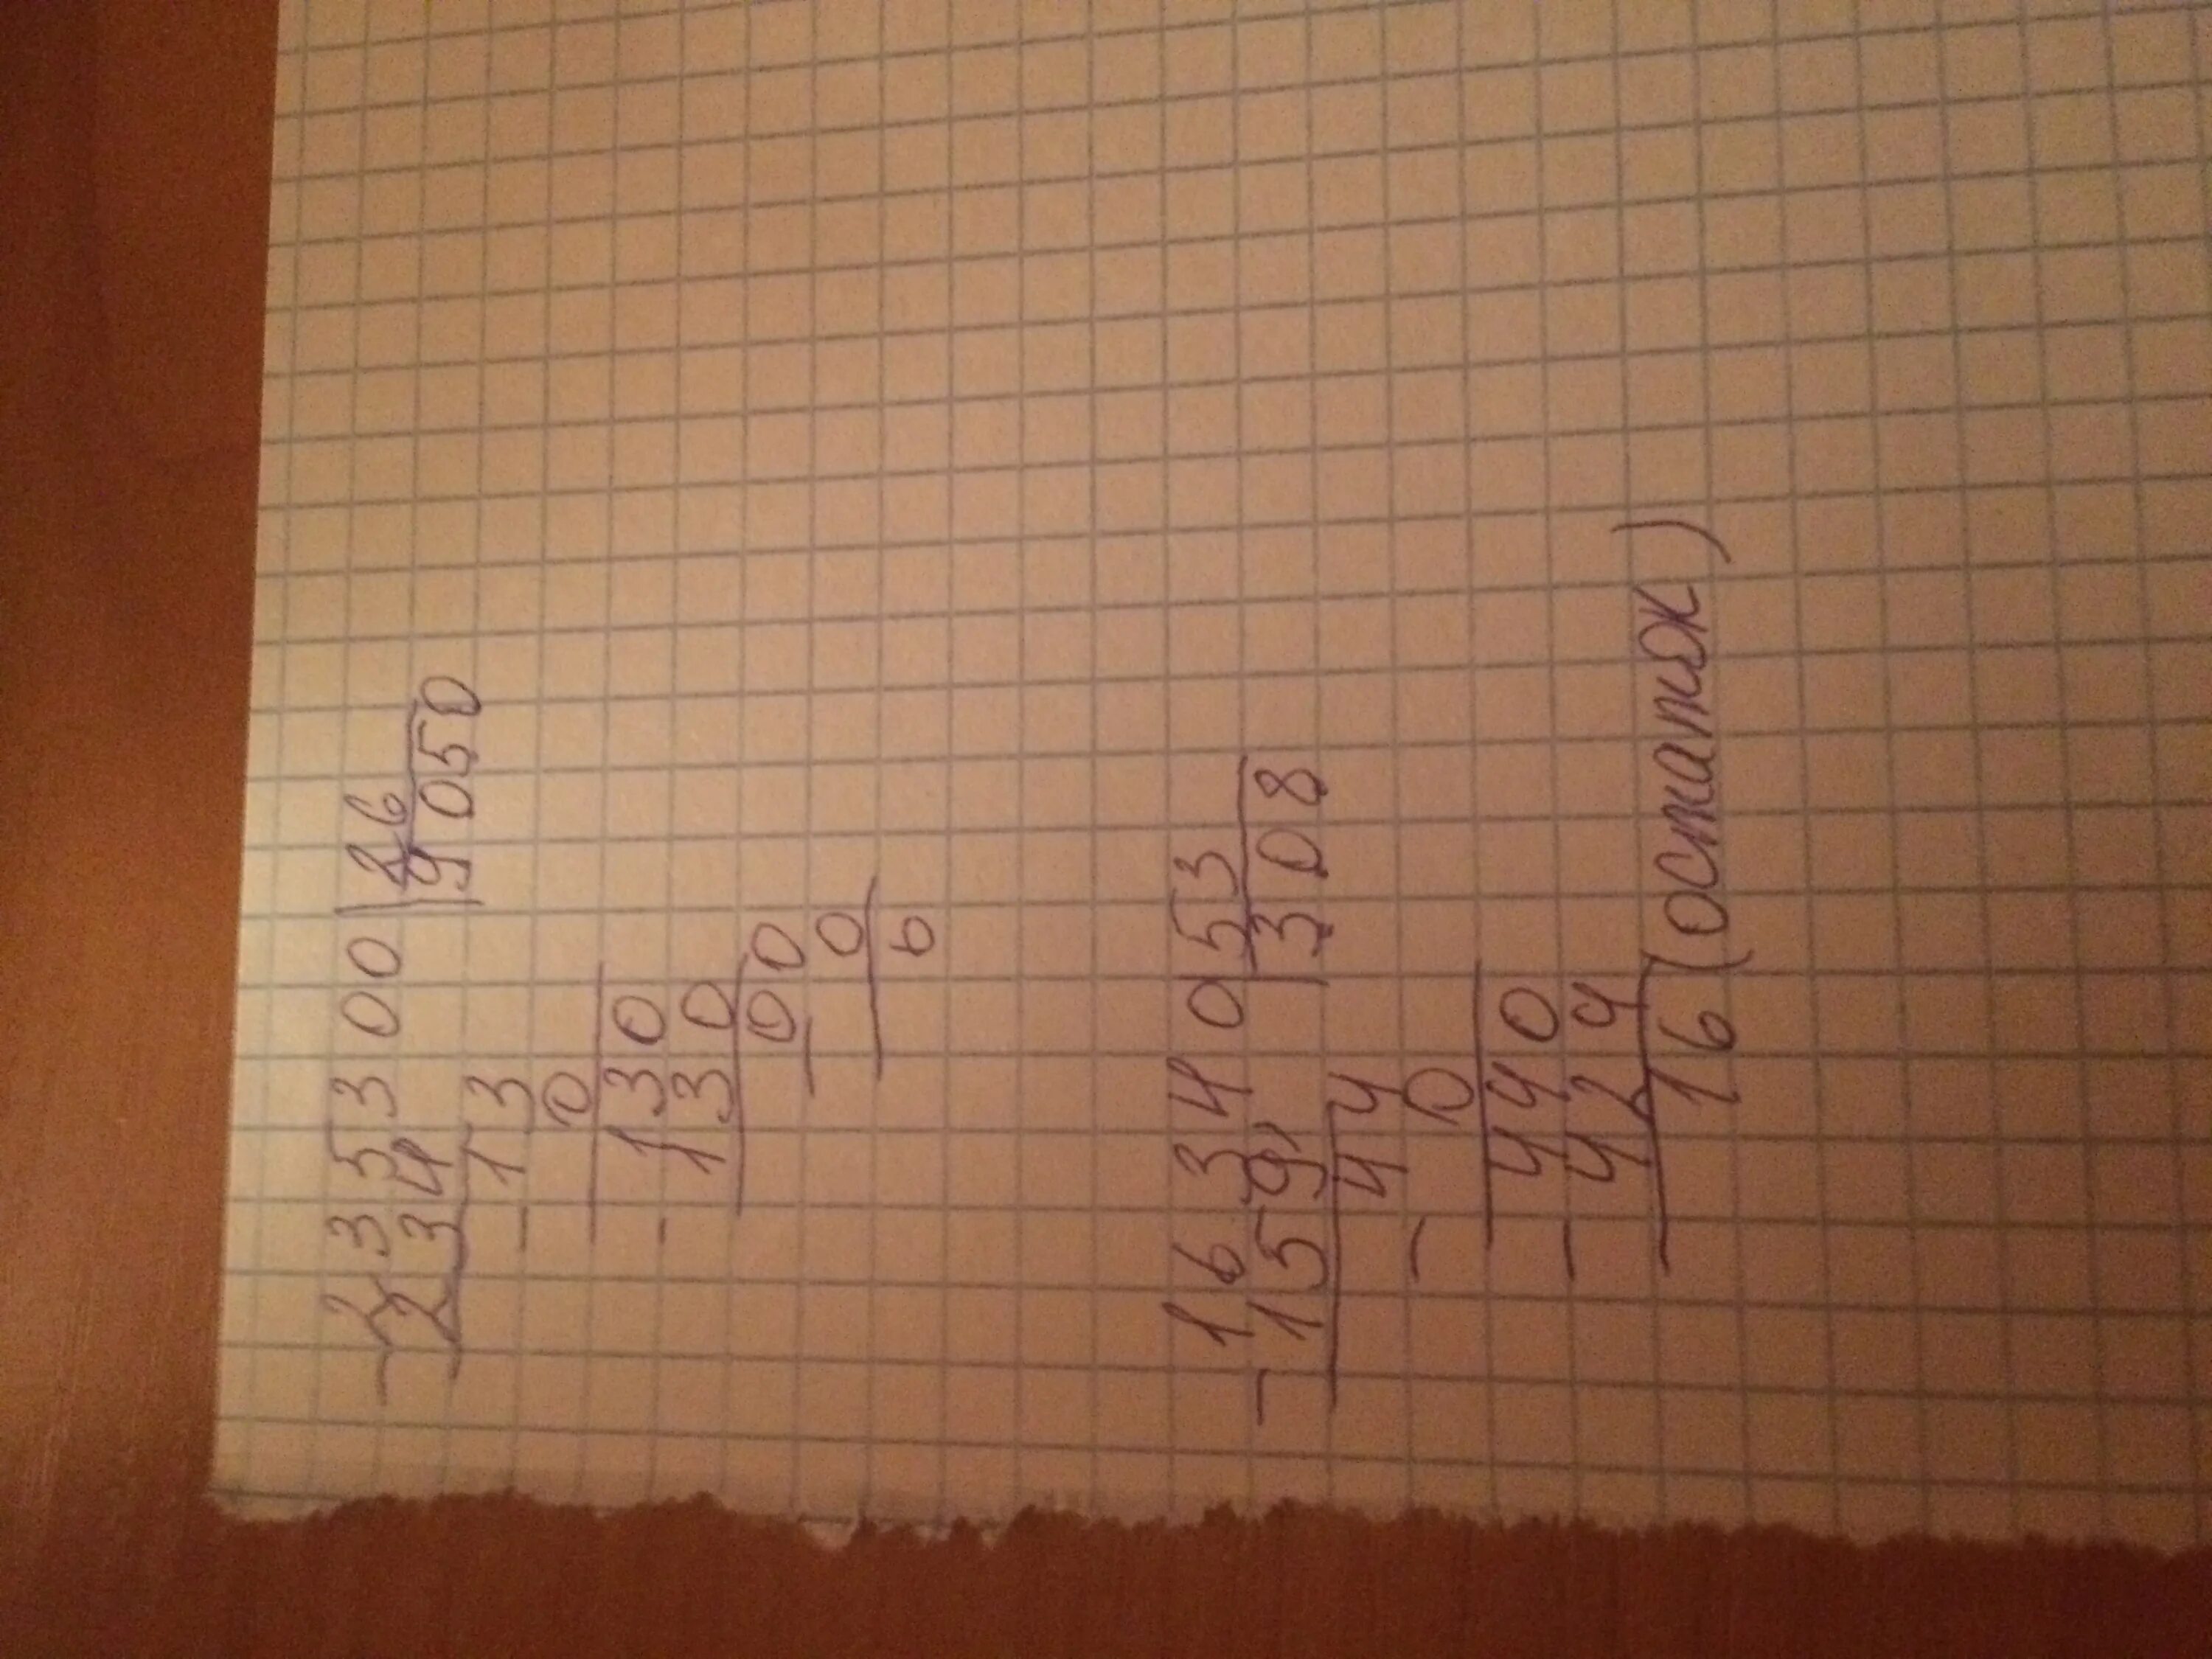 235300 26
234 9050
- 13
0
- 130
130
- 00
0
0
- 16340 53
159 308
44
- 0
440
- 424
16 (остаток)